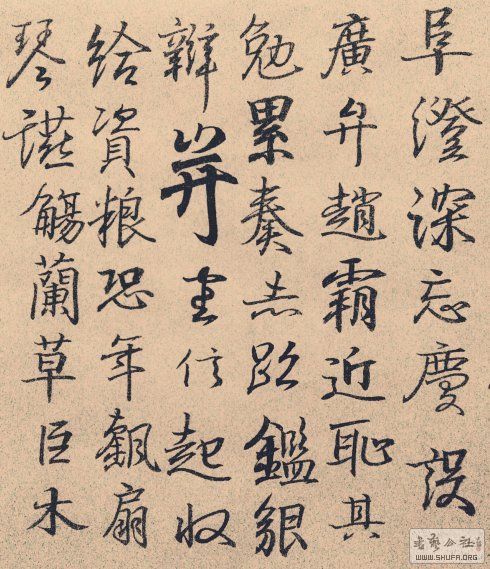 阜澄深忘慶設
廣弁趙霸近恥其
勉累奏鑑貌
辯弁信起收
給資粮恐年飄扇
琴讌觴蘭草臣木
書藝公社
WWW.SHUFA.ORG